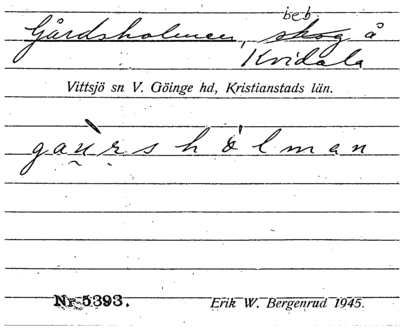 beb.
Gårdsholmen, skog å
Kvidala
Vittsjö sn V. Göinge hd, Kristianstads län.
gau̯r̥shòlman
Nr 5393. Erik W. Bergenrud 1945.